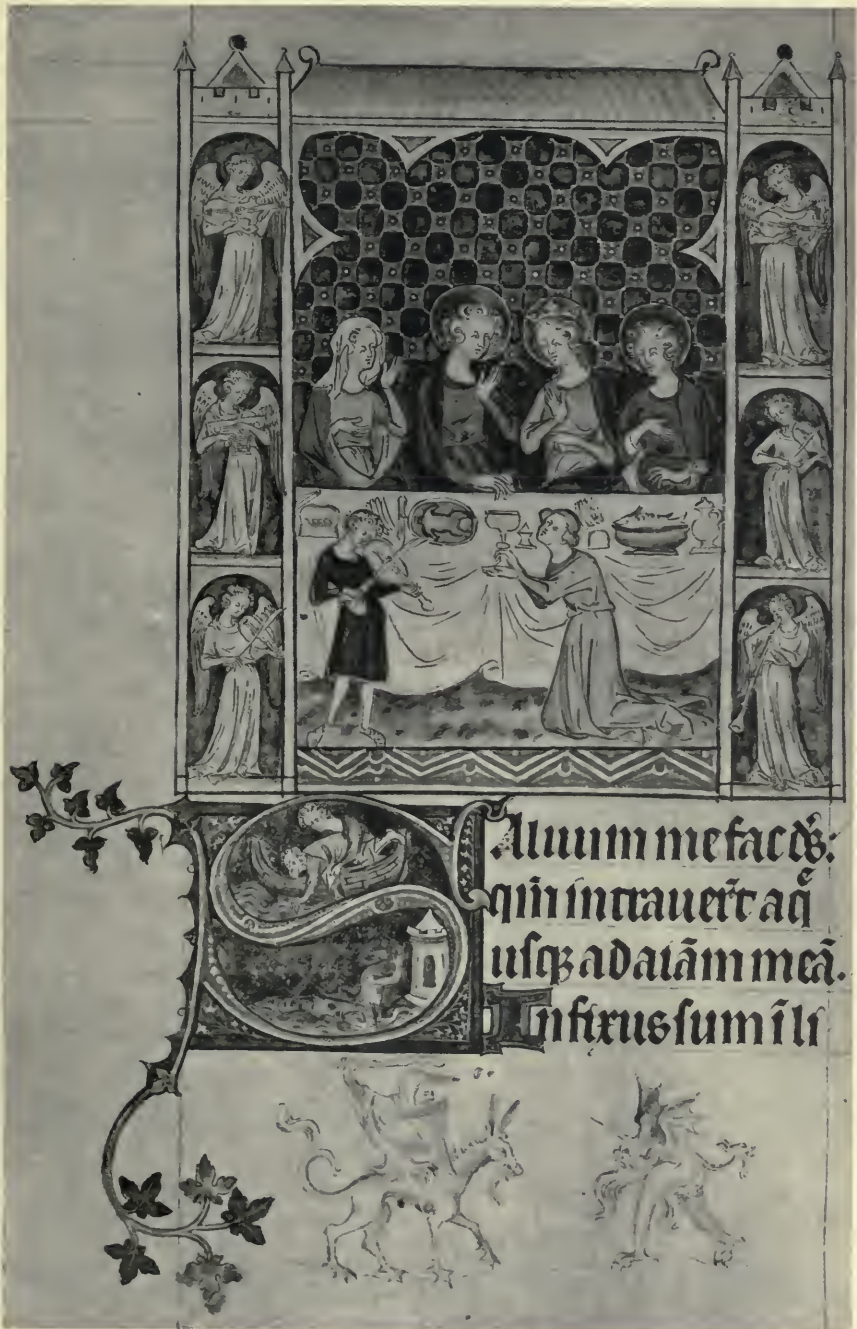 SAluum me fac ds̄:
qm̄ intrauer̄t aq̄
usqꝫ ad aīām meā.
Infixus sum ī li